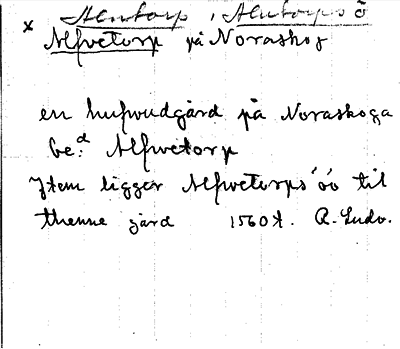 Alntorp, Alntorps ö
x Alfvetorp på Noraskog
en hufvudgård på Noraskoga
be:d Alfvetorp
Item ligger Alfvetorps öö til
thenne gård 1560 t. R. Ludv.